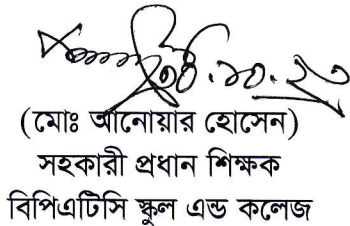 (মোঃ আনোয়ার হোসেন)
সহকারী প্রধান শিক্ষক
বিপিএটিসি স্কুল এন্ড কলেজ